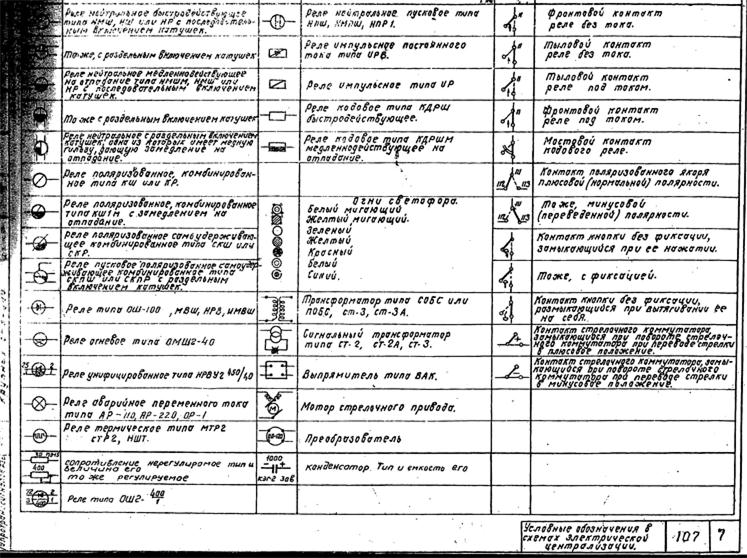 Реле нейтральное быстродействующее
типа НМШ, НШ или НР с последователь-
ным включением катушек.
То же, с раздельным включением катушек
Реле нейтральное медленнодействующее
на отпадание типа НМШМ, НМШ или
НР с последовательным включением
катушек.
То же с раздельным включением катушек
Реле нейтральное с раздельным включением
катушек, одна из которых имеет медную
гильзу, дающую замедление на
отпадание.
Реле поляризованное, комбинирован-
ное типа КШ или КР.
Реле поляризованное, комбинированное
типа КШ1М с замедлением на
отпадание.
Реле поляризованное самоудерживаю-
щее комбинированное типа СКШ или
СКР.
Реле пусковое поляризованное самоудер-
живающее комбинированное типа
СКПШ или СКПР с раздельным
включением катушек.
Реле типа ОШ-100, МВШ, НРВ, НМВШ
Реле огневое типа ОМШ2-40
Реле унифицированное типа НРВУ2 450/40
Реле аварийное переменного тока
типа АР-110, АР-220, ОР-1
Реле термическое типа МТР2
СТР2, НШТ.
400
сопротивление нерегулируемое тип и
величина его
то же регулируемое
Реле типа ОШ2- 400/1
Реле нейтральное пусковое типа
НПШ, НМПШ, НПР1.
Реле импульсное постоянного
тока типа ИРВ.
Реле импульсное типа ИР
Реле кодовое типа КДРШ
быстродействующее.
Реле кодовое типа КДРШМ
медленнодействующее на
отпадание.
Огни светофора.
Белый мигающий.
Желтый мигающий.
Зеленый
Желтый
Красный
Белый
Синий.
Трансформатор типа СОБС или
ПОБС, СТ-3, СТ-3А.
Сигнальный трансформатор
типа СТ-2, СТ-2А, СТ-3.
Выпрямитель типа ВАК.
М
Мотор стрелочного привода.
Преобразователь
1000
конденсатор. Тип и емкость его
Фронтовой контакт
реле без тока.
Тыловой контакт
реле без тока.
Тыловой контакт
реле под током.
Фронтовой контакт
реле под током.
Мостовой контакт
кодового реле.
111
112 113
Контакт поляризованного якоря
плюсовой (нормальной) полярности.
111
112 113
То же, минусовой
(переведенной) полярности.
Контакт кнопки без фиксации,
замыкающийся при ее нажатии.
То же, с фиксацией.
Контакт кнопки без фиксации,
размыкающийся при вытягивании ее
на себя.
Контакт стрелочного коммутатора,
замыкающийся при повороте стрелоч-
ного коммутатора при переводе стрелки
в плюсовое положение.
Контакт стрелочного коммутатора, замы-
кающийся при повороте стрелочного
коммутатора при переводе стрелки
в минусовое положение.
Условные обозначения в
схемах электрической
централизации.
107
7